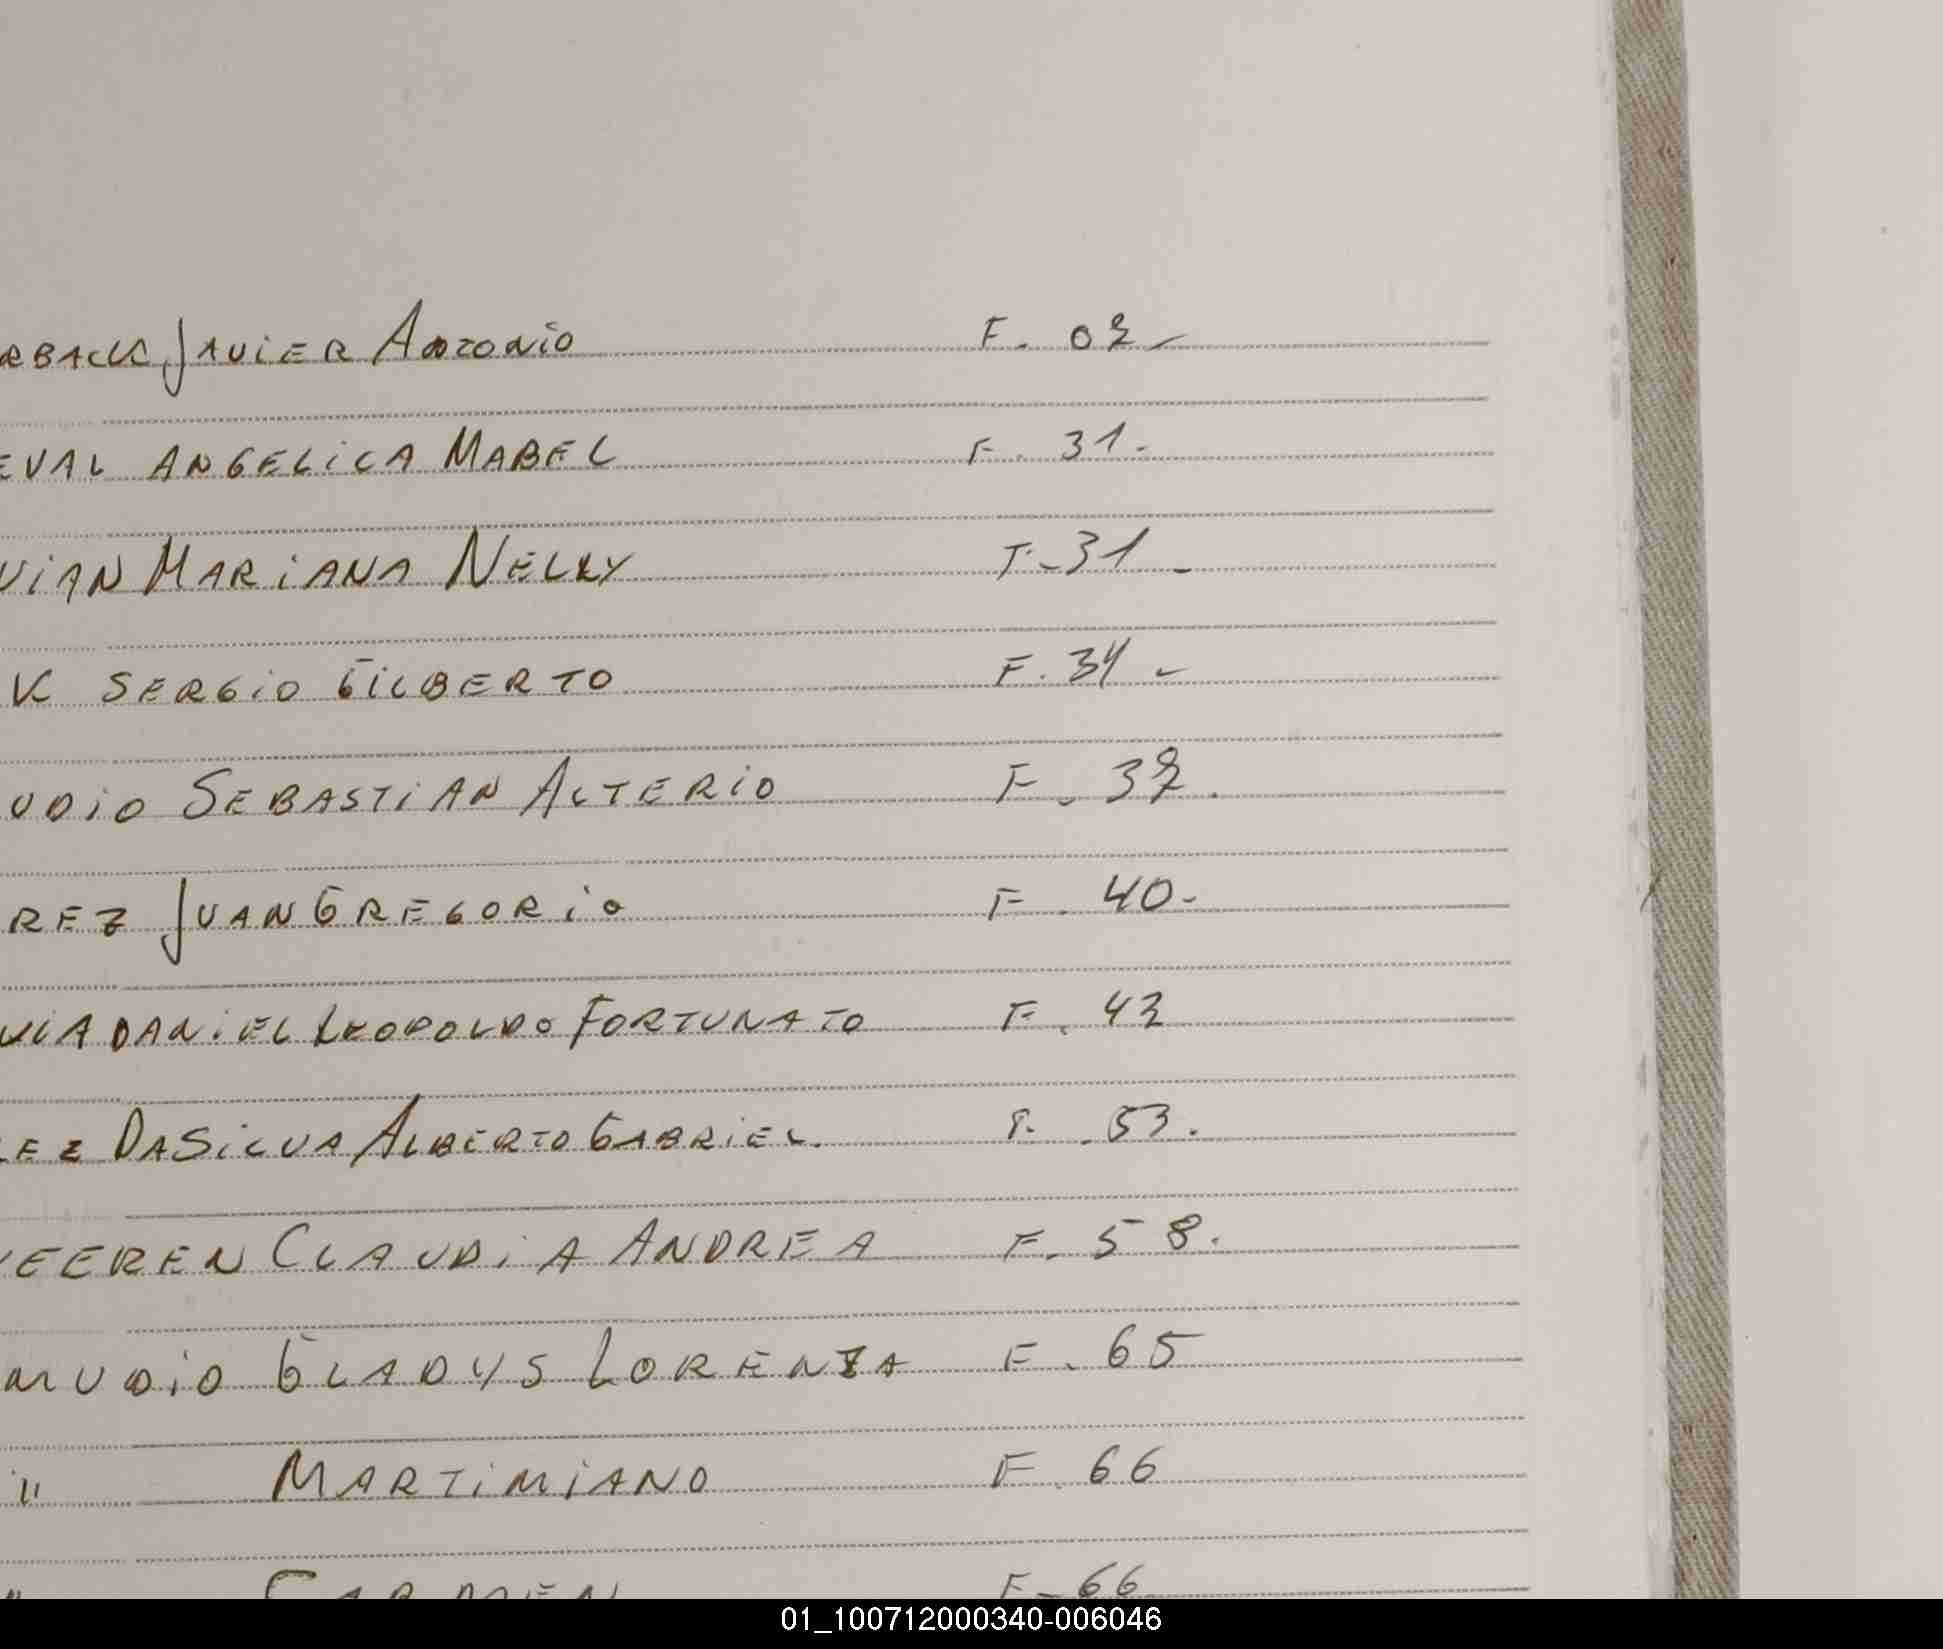 RBACK JAVIER ANTONIO F. 02-
EVAL ANGELICA MABEL F. 31.
VIAN MARIANA NELLY F-31-
K SERGIO GILBERTO F. 34-
UDIO SEBASTIAN ALTERIO F. 37.
REZ JUAN GREGORIO F. 40-
DANIEL LEOPOLDO FORTUNATO F. 42
EZ DASILVA ALBERTO GABRIEL. F. 53.
EEREN CLAUDIA ANDREA F. 58.
MUDIO GLADYS LORENZA F. 65
" MARTIMIANO F. 66
" CARMEN F-66
01_100712000340-006046